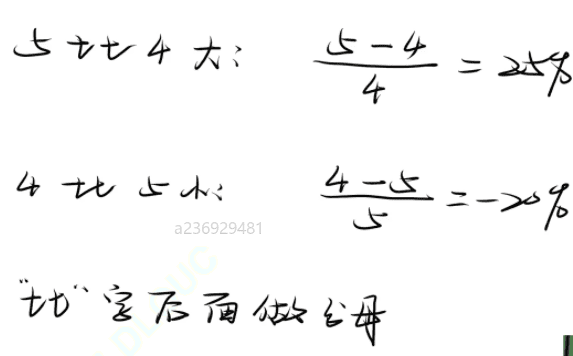 5比4大： (5-4)/4 = 25%
4比5小： (4-5)/5 = -20%
a236929481
"比"字后面做分母